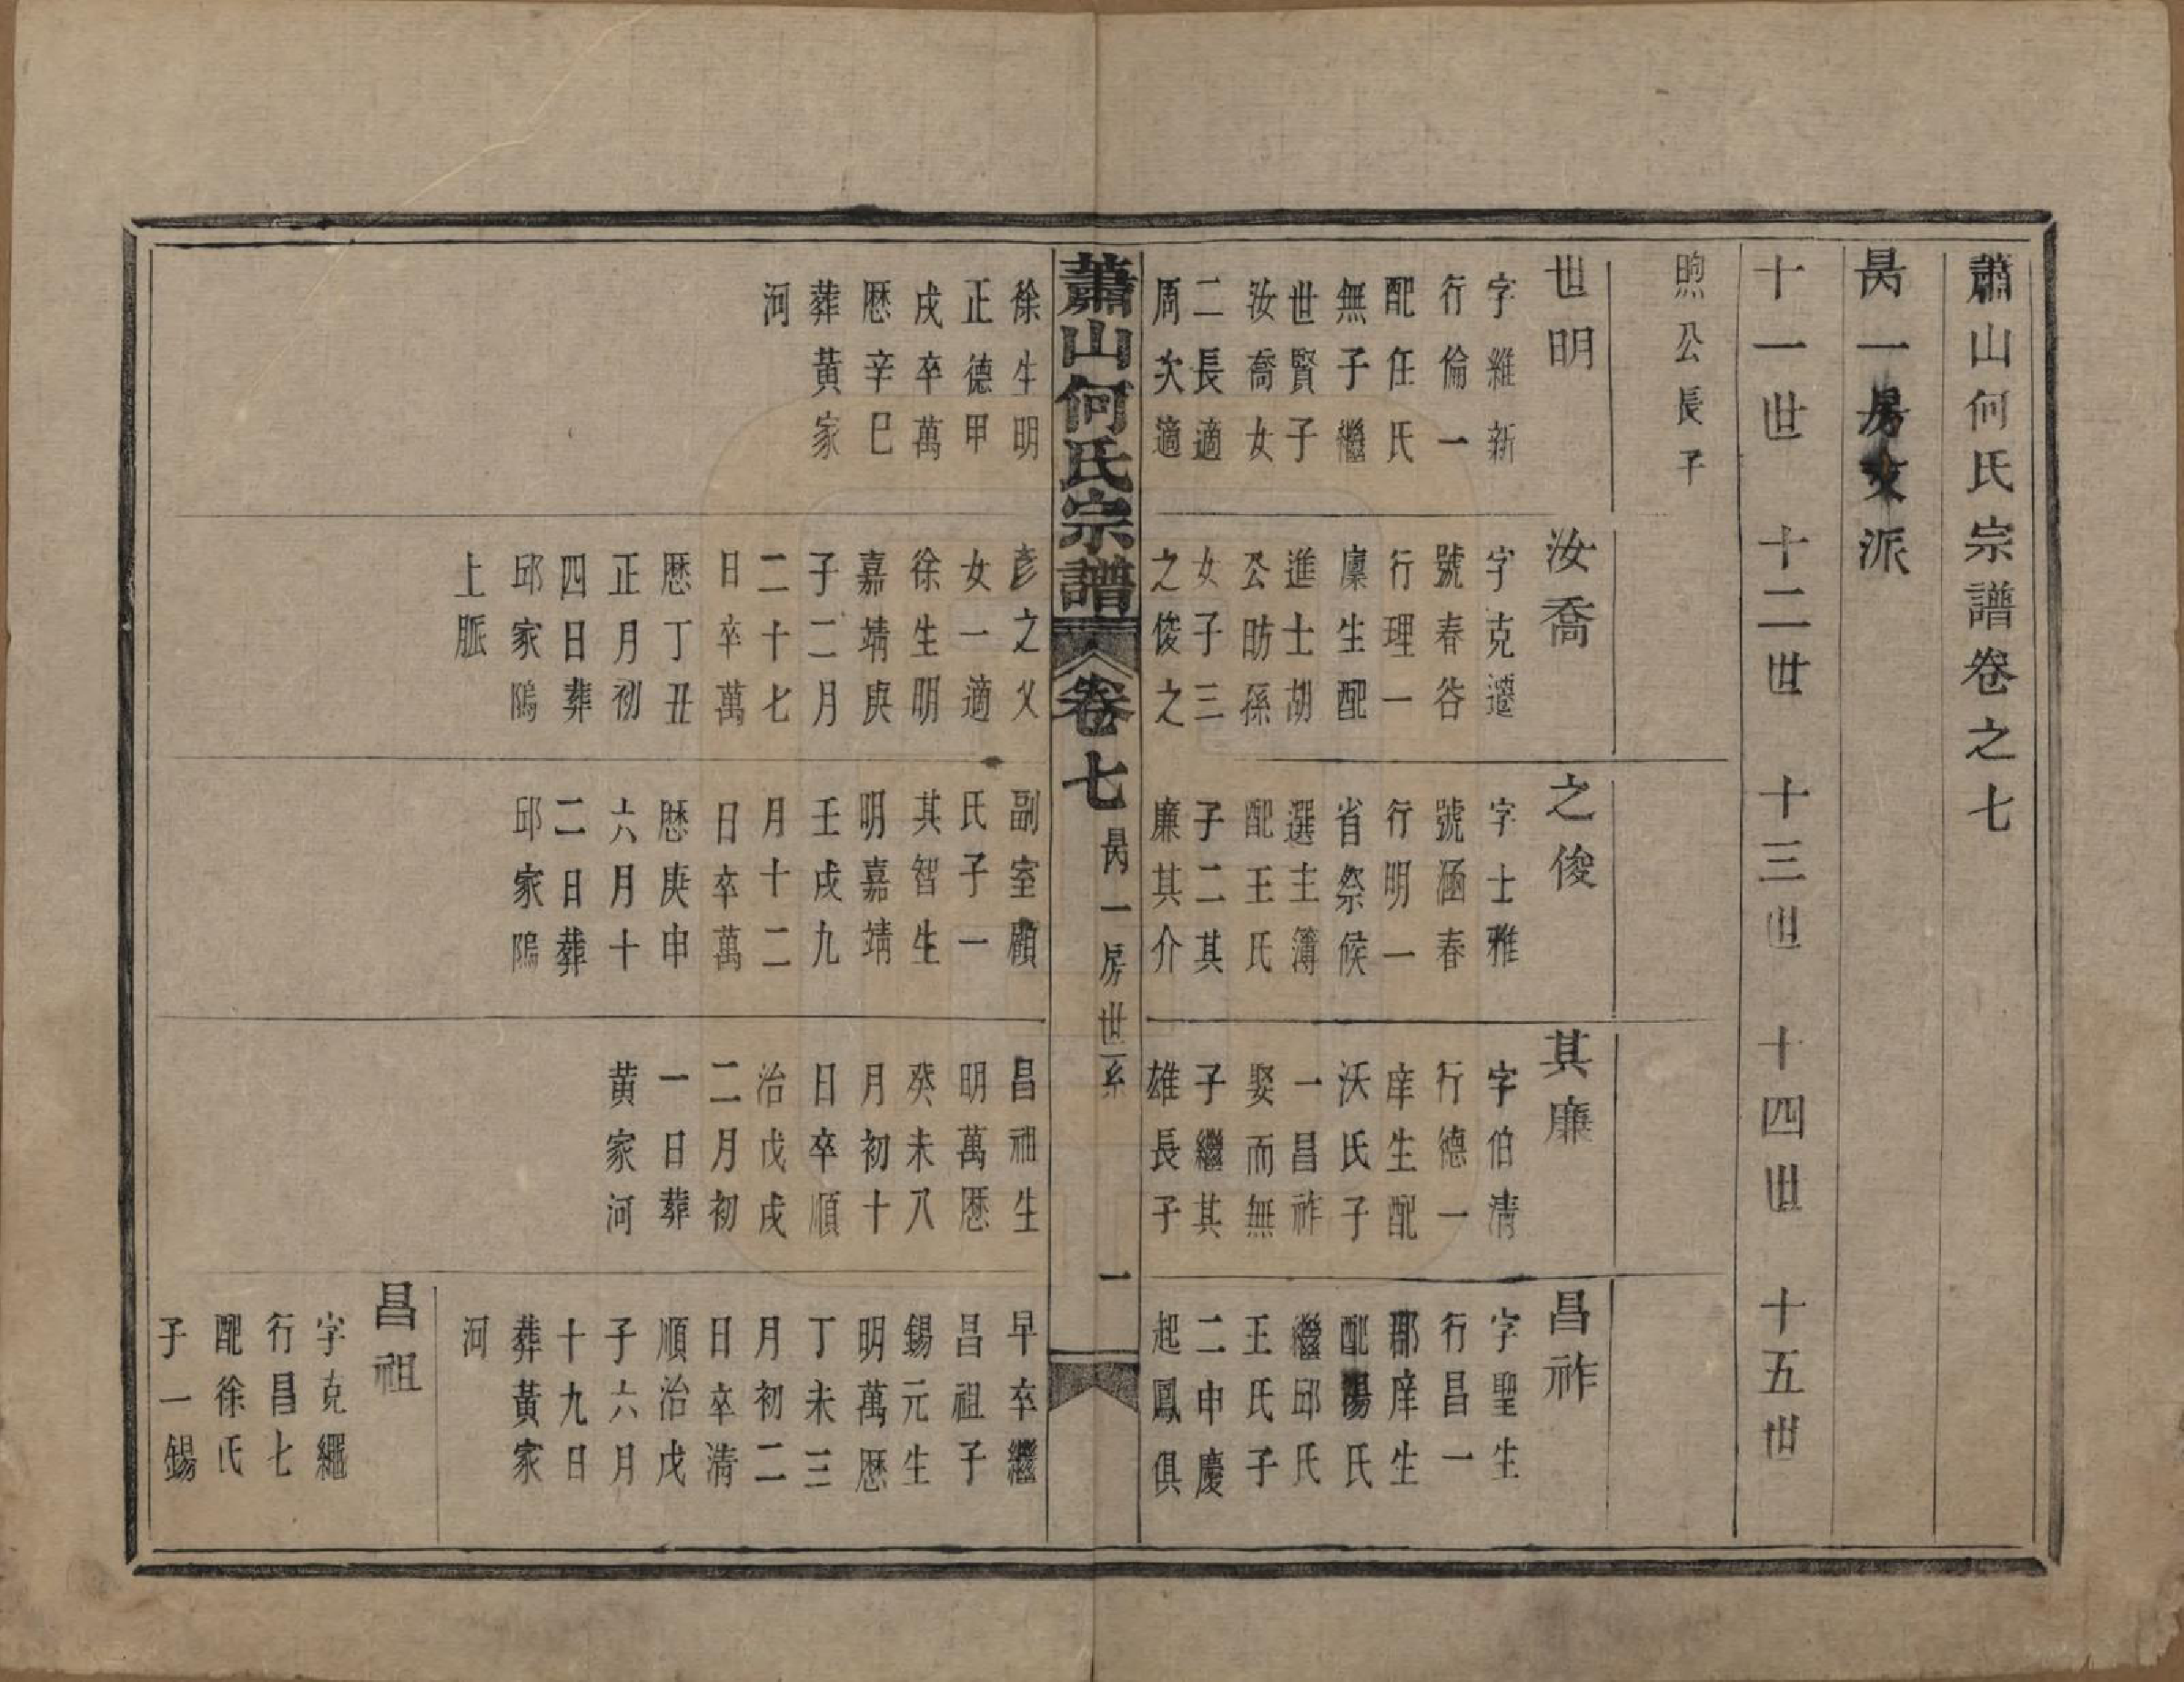 蕭山何氏宗譜卷之七
昺一房支派
十一世 十二世 十三世 十四世 十五世
煦公長子
世明
字維新
行倫一
配任氏
無子繼
世賢子
汝喬女
二長適
周次適
徐生明
正德甲
戌卒萬
厯辛巳
葬黃家
河
汝喬
字克遷
號春谷
行理一
廩生配
進士胡
公昉孫
女子三
之俊之
彥之父
女一適
徐生明
嘉靖庚
子二月
二十七
日卒萬
厯丁丑
正月初
四日葬
邱家隖
上脈
之俊
字士雅
號涵春
行明一
省祭候
選主簿
配王氏
子二其
廉其介
副室顧
氏子一
其智生
明嘉靖
壬戌九
月十二
日卒萬
厯庚申
六月十
二日葬
邱家隖
其廉
字伯清
行德一
庠生配
沃氏子
一昌祚
娶而無
子繼其
雄長子
昌祖生
明萬厯
癸未八
月初十
日卒順
治戊戌
二月初
一日葬
黃家河
昌祚
字聖生
行昌一
郡庠生
配湯氏
繼邱氏
王氏子
二申慶
起鳳俱
早卒繼
昌祖子
錫元生
明萬厯
丁未三
月初二
日卒清
順治戊
子六月
十九日
葬黃家
河
昌祖
字克繩
行昌七
配徐氏
子一錫
蕭山何氏宗譜 卷七 昺一房世系 一